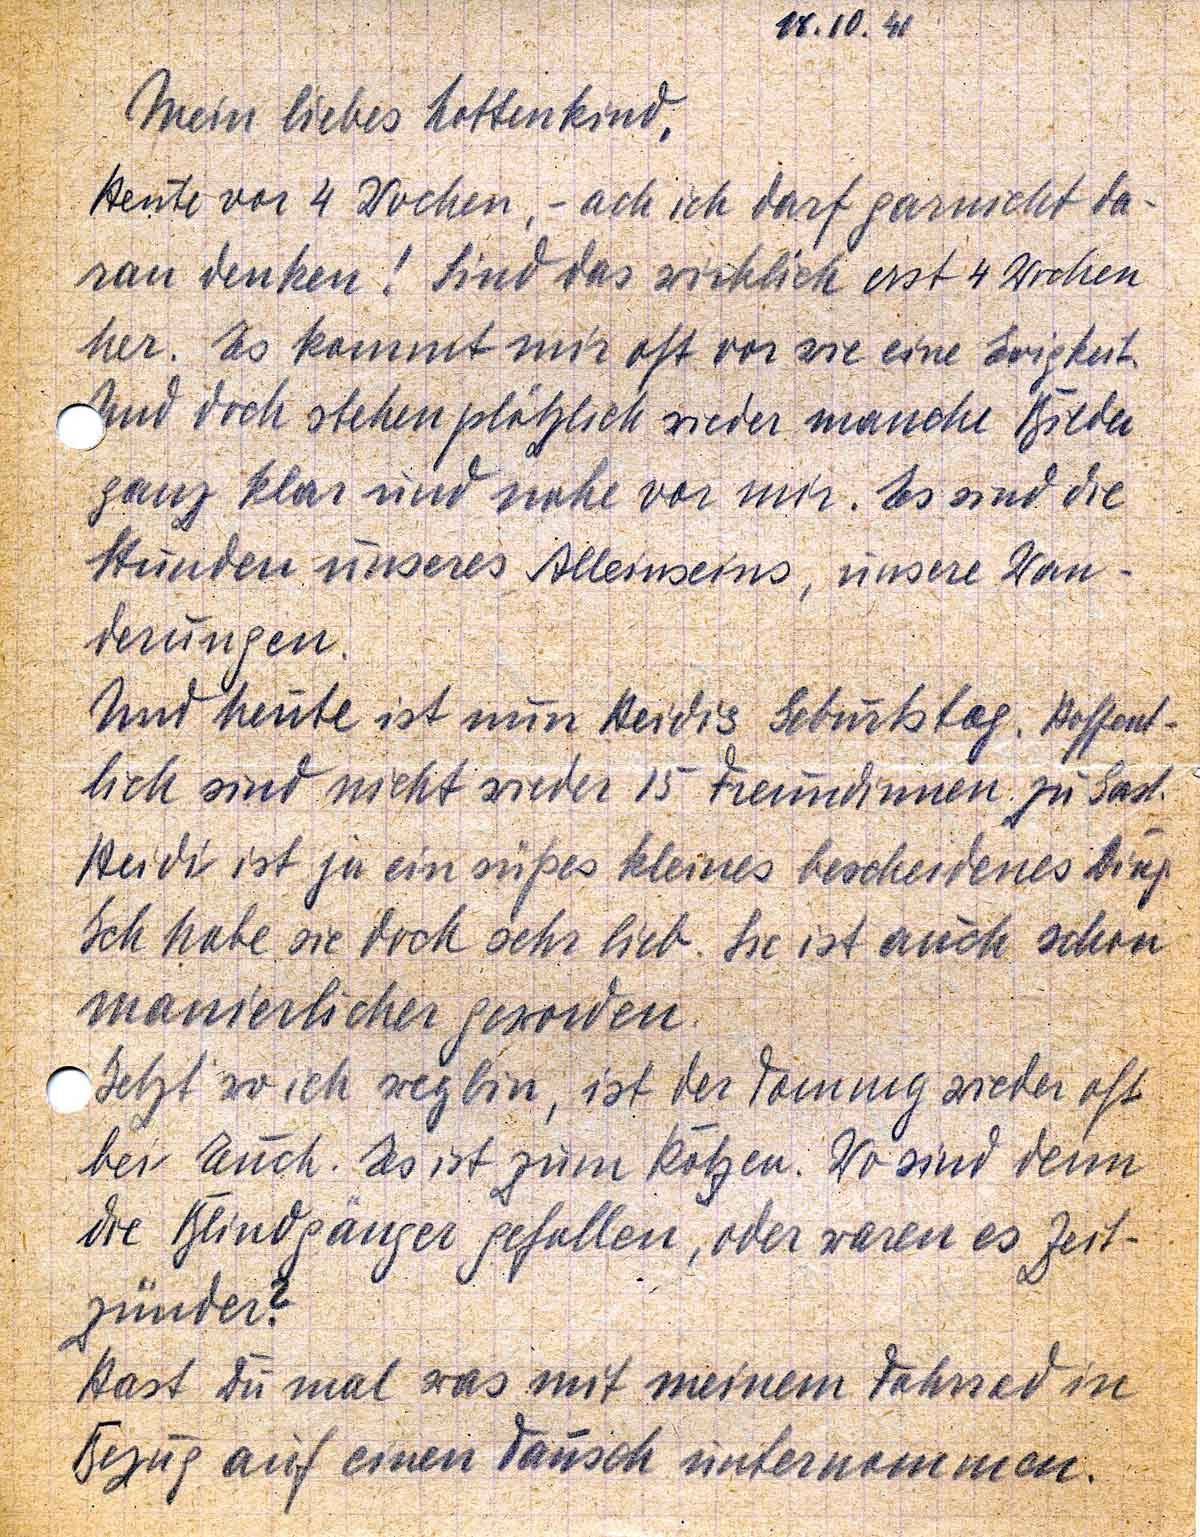 18.10.41
Mein liebes Lottenkind,
Heute vor 4 Wochen, - ach ich darf garnicht da-
ran denken! Sind das wirklich erst 4 Wochen
her. Es kommt mir oft vor wie eine Ewigkeit.
Und doch stehen plötzlich wieder manche Bilder
ganz klar und nahe vor mir. Es sind die
Stunden unseres Alleinseins, unsere Wan-
derungen.
Und heute ist nun Heidis Geburtstag. Hoffent-
lich sind nicht wieder 15 Freundinnen zu Gast.
Heidi ist ja ein süßes kleines bescheidenes Ding.
Ich habe sie doch sehr lieb. Sie ist auch schon
manierlicher geworden.
Jetzt wo ich weg bin, ist der Tommy wieder oft
bei Euch. Es ist zum Kotzen. Wo sind denn
die Blindgänger gefallen, oder waren es Zeit-
zünder?
Hast Du mal was mit meinem Fahrrad in
Bezug auf einen Tausch unternommen.